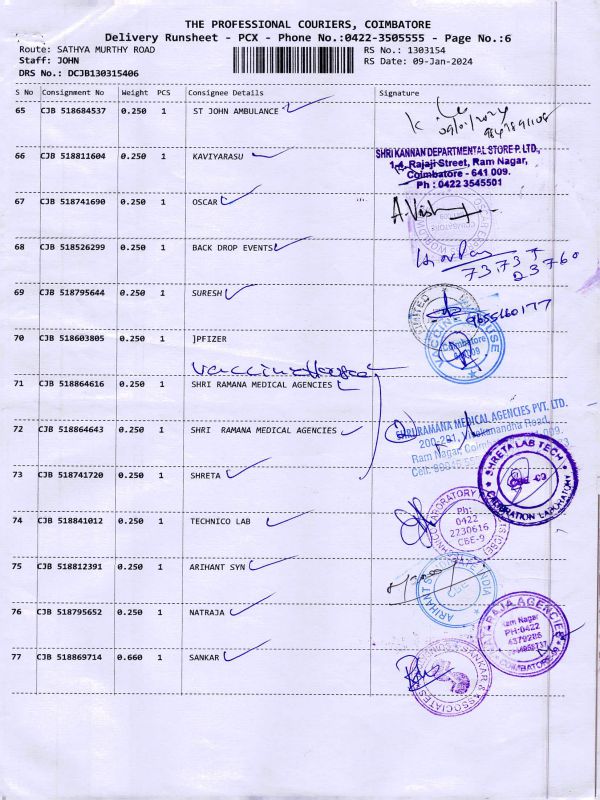 THE PROFESSIONAL COURIERS, COIMBATORE
Delivery Runsheet - PCX - Phone No.:0422-3505555 - Page No.:6
Route: SATHYA MURTHY ROAD
RS No.: 1303154
Staff: JOHN
RS Date: 09-Jan-2024
DRS No.: DCJB130315406
S No Consignment No Weight PCS Consignee Details Signature
65 CJB 518684537 0.250 1 ST JOHN AMBULANCE
66 CJB 518811604 0.250 1 KAVIYARASU
SHRI KANNAN DEPARTMENTAL STORE P. LTD.,
1-4, Rajaji Street, Ram Nagar,
Coimbatore - 641 009.
Ph : 0422 3545501
67 CJB 518741690 0.250 1 OSCAR
A.Vish
68 CJB 518526299 0.250 1 BACK DROP EVENTS
73737
23760
69 CJB 518795644 0.250 1 SURESH
9655160177
70 CJB 518603805 0.250 1 ]PFIZER
VACCINE HOUSE
Coimbatore
641009
Vaccine House
71 CJB 518864616 0.250 1 SHRI RAMANA MEDICAL AGENCIES
72 CJB 518864643 0.250 1 SHRI RAMANA MEDICAL AGENCIES
SHRI RAMANA MEDICAL AGENCIES PVT. LTD.
200-201, Vivekanandha Road,
73 CJB 518741720 0.250 1 SHRETA
SHRETA LAB TECH
CBE. 09
CALIBRATION LABORATORY
74 CJB 518841012 0.250 1 TECHNICO LAB
Ph:
0422
2230616
CBE-9
75 CJB 518812391 0.250 1 ARIHANT SYN
76 CJB 518795652 0.250 1 NATRAJA
NAT-RAJA AGENCIES
Ram Nagar
PH-0422
COIMBATORE-09
77 CJB 518869714 0.660 1 SANKAR
SANKAR & ASSOCIATES